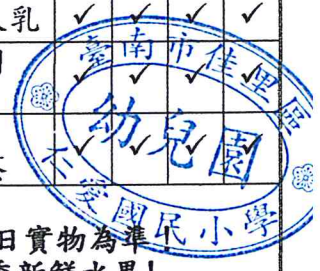 乳 ✓ ✓ ✓ ✓
✓ ✓ ✓ ✓
✓ ✓ ✓ ✓
臺南市佳里區
幼兒園
仁愛國民小學
日實物為準!
新鮮水果!